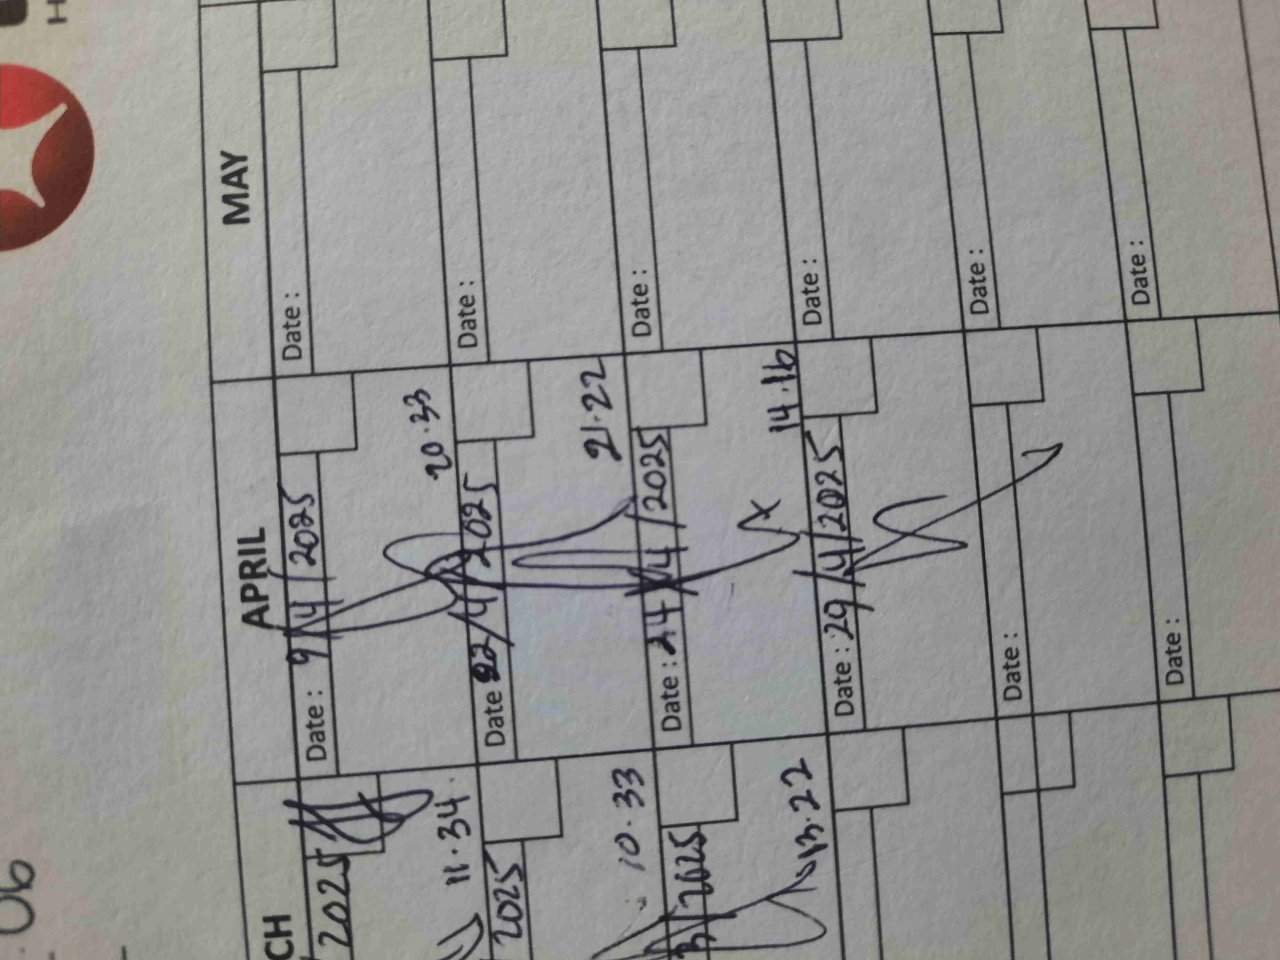 MAY
Date :
Date :
Date :
Date :
Date :
Date :
APRIL
Date : 9/4/2025
20.33
Date 22/4/2025
21.22
Date : 24/4/2025
14.16
Date : 29/4/2025
Date :
Date :
CH
2025
11.34
2025
10.33
3/2025
13.22
06
H